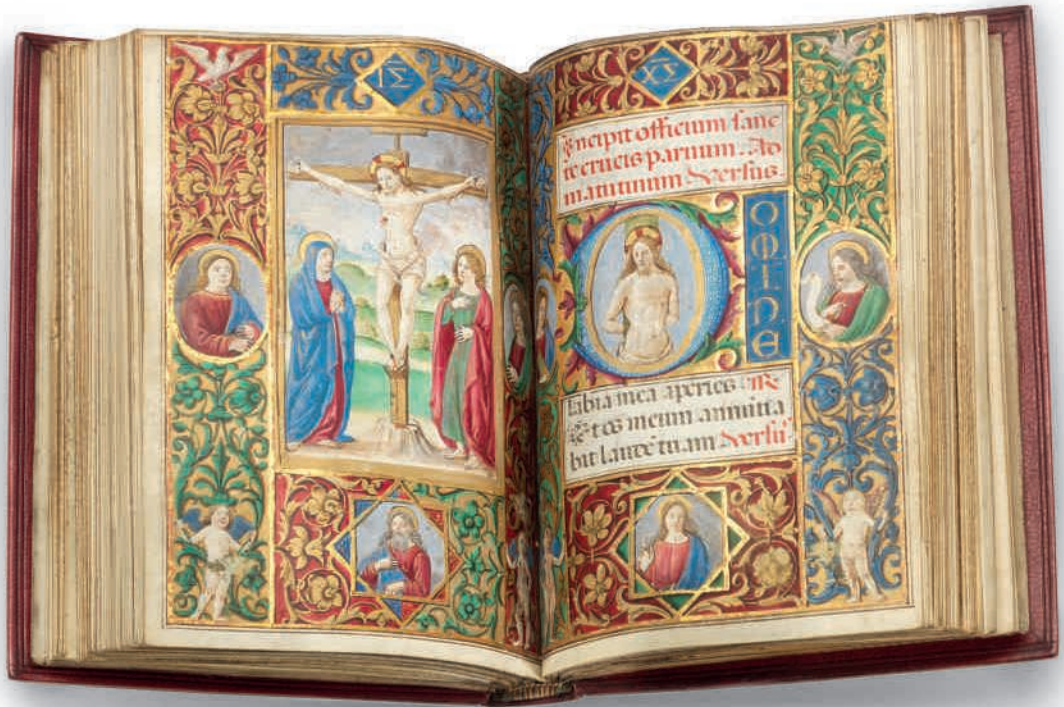 IΣ
XΣ
Incipit officium sanc
te crucis paruum. Ad
matutinum Versus.
DOMINE
labia mea aperies Re
et os meum annūtia
bit laudē tuam Versu·